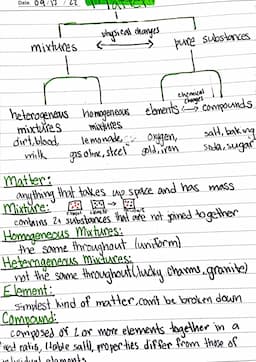 Date 09/13/22
Matter
physical changes
mixtures
pure substances
chemical
changes
heterogeneous
mixtures
dirt, blood,
milk
homogeneous
mixtures
lemonade,
gasoline, steel
elements
oxygen,
gold, iron
compounds
salt, baking
soda, sugar
Matter:
anything that takes up space and has mass
Mixture:
contains 2+ substances that are not joined together
Homogeneous Mixtures:
the same throughout (uniform)
Heterogeneous Mixtures:
not the same throughout (lucky charms, granite)
Element:
simplest kind of matter, can't be broken down
Compound:
composed of 2 or more elements together in a
ratio, (table salt), properties differ from those of
elements